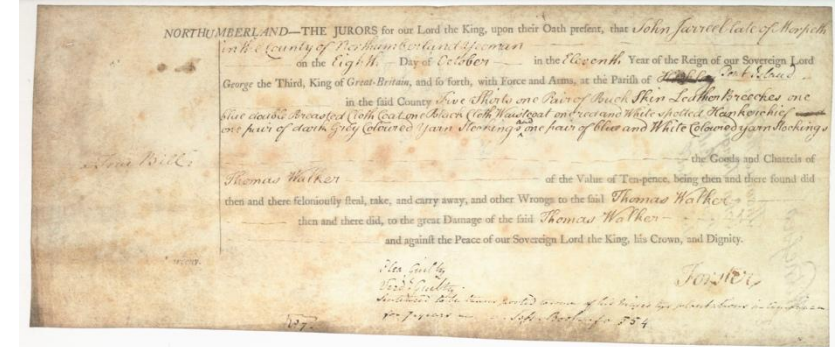 NORTHUMBERLAND—THE JURORS for our Lord the King, upon their Oath present, that John Jarret late of Morpeth
in the County of Northumberland Yeoman
on the Eighth Day of October in the Eleventh Year of the Reign of our Sovereign Lord
George the Third, King of Great-Britain, and so forth, with Force and Arms, at the Parish of
in the said County Five Shirts one Pair of Buck Skin Leather Breeches one
blue double Breasted Cloth Coat one Black Cloth Waistcoat one red and White spotted Hankerchief
one pair of dark Grey Coloured Yarn Stockings and one pair of blue and White Coloured Yarn Stockings
True Bill
the Goods and Chattels of
Thomas Walker of the Value of Ten-pence, being then and there found did
then and there feloniously steal, take, and carry away, and other Wrongs to the said Thomas Walker
then and there did, to the great Damage of the said Thomas Walker
and against the Peace of our Sovereign Lord the King, his Crown, and Dignity.
Plea Guilty
Verdt Guilty
Forster
Sentenced to be transported to some of his
for 7 years 554